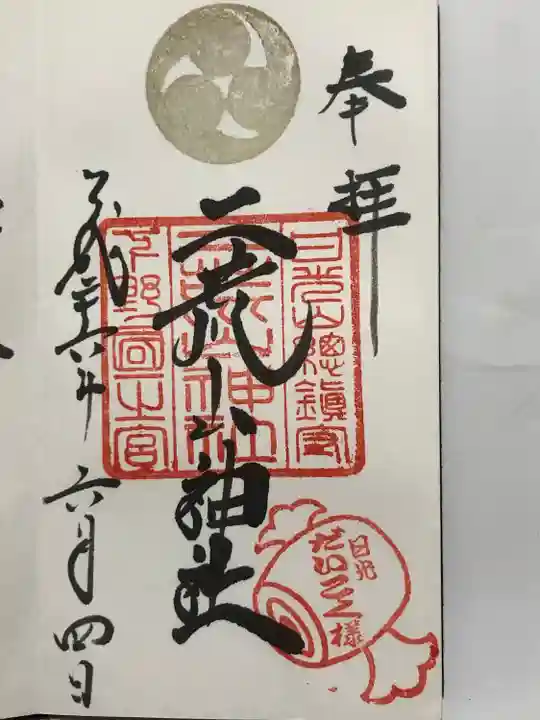 奉拝
日光山總鎮守
二荒山神社
下野國一之宮
二荒山神社
日光
だいこく様
平成二十六年六月四日